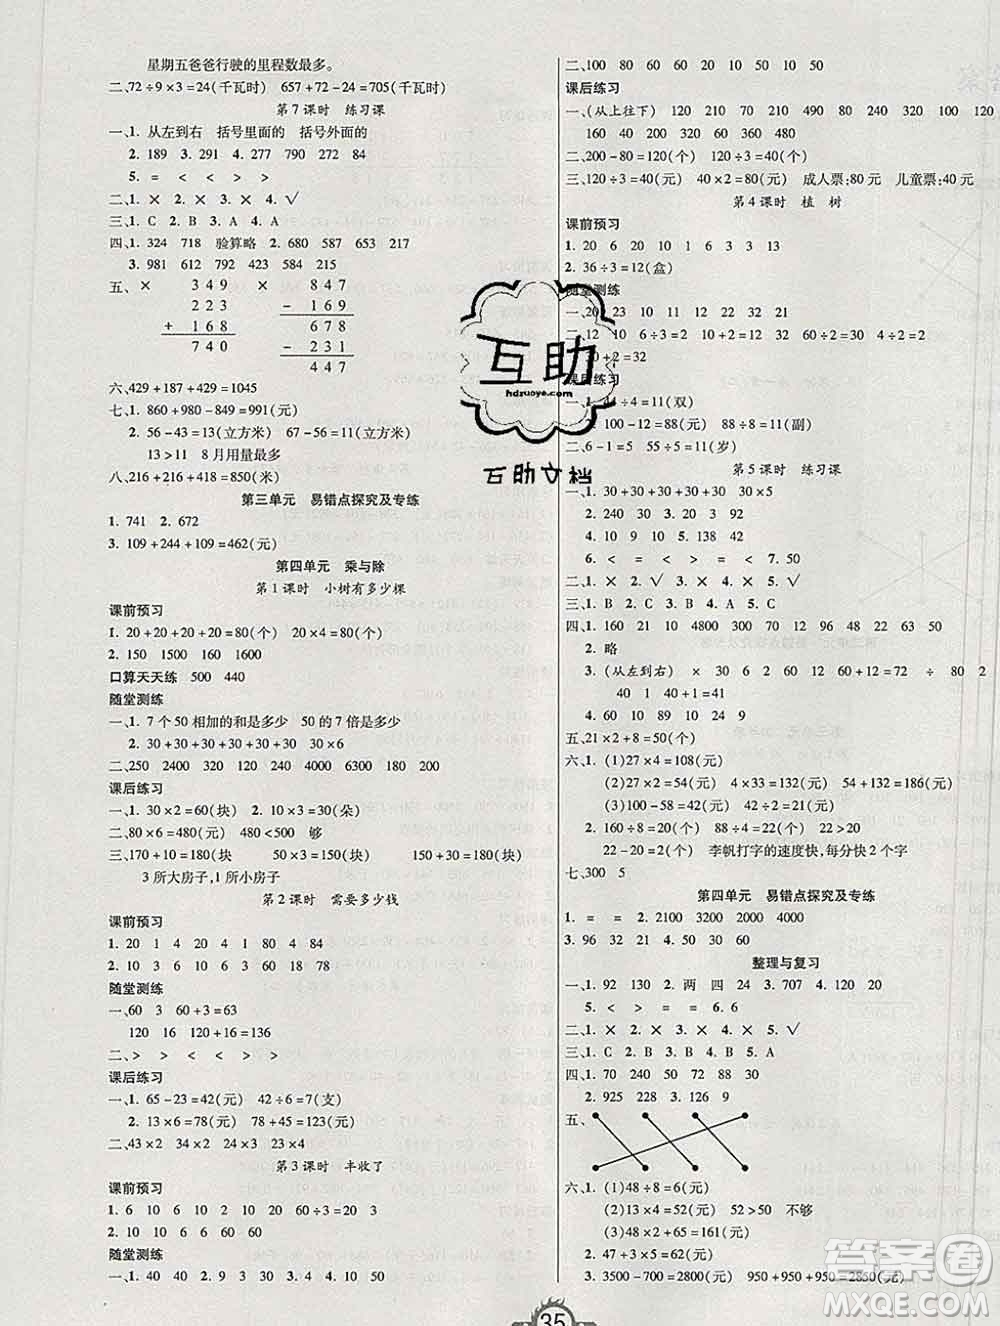 星期五爸爸行驶的里程数最多。
二、72÷9×3=24(千瓦时) 657+72-24=705(千瓦时)
第7课时 练习课
一、1. 从左到右 括号里面的 括号外面的
2. 189 3. 291 4. 276 284 272 84
5. = < < > >
二、1. × 2. × 3. × 4. √
三、1. C 2. B 3. A 4. A
四、1. 324 718 验算略 2. 680 587 653 217
3. 981 612 315 236
五、 × 349 × 847
223 - 169
+ 168 678
740 - 231
447
六、429+187+429=1045
七、1. 860+980-849=991(元)
2. 56-43=13(立方米) 67-56=11(立方米)
13>11 8月用量最多
八、216+216+418=850(米)
第三单元 易错点探究及专练
1. 741 2. 672
3. 109+244+109=462(元)
第四单元 乘与除
第1课时 小树有多少棵
课前预习
1. 20+20+20+20=80(个) 20×4=80(个)
2. 150 1500 160 1600
口算天天练 500 440
随堂测练
一、1. 7个50相加的和是多少 50的7倍是多少
2. 30+30+30+30+30+30
二、250 2400 320 1200 4200 180 200
课后练习
一、1. 30×2=60(块) 2. 10×3=30(朵)
二、80×6=480(元) 480<500 够
三、170+10=180(块 50×3=150(块) 60×2=120(块)
3所大房子,1所小房子
第2课时 需要多少钱
课前预习
1. 20 1 4 20 4 1 80 4 84
2. 10 3 6 3 60 18 78
随堂测练
一、60 3 60+3=63
120 16 120+16=136
二、> > > < > <
课后练习
一、1. 65-23=42(元) 42÷6=7(支)
2. 13×6=78(元) 78+45=123(元)
二、43×2 34×2 24×3 23×4
第3课时 丰收了
课前预习
1. 9 90 6 60 20 20 3
2. 10 10 6 6 60 60
随堂测练
一、1. 40 40 2. 50 50
二、100 80 60 20 10 10 50
课后练习
一、(从上往下) 120 210 480 80 90 120
160 40 200 630 240 210
二、200-80=120(个) 120÷3=40(个)
三、120÷3=40(元) 40×2=80(元) 成人票:80元 儿童票:40元
第4课时 植 树
课前预习
1. 20 6 20 10 1 6 3 3 13
2. 36÷3=12(盒)
随堂测练
一、20 23 10 11 12 22 32 21
二、12 10 6÷3=2 10+2=12 32 40 4÷2=2
30+2=32
课后练习
÷4=11(双)
2. 100-12=88(元) 88÷8=11(副)
二、6-1=5 55÷5=11(岁)
第5课时 练习课
一、1. 30+30+30+30+30 30×5
2. 240 30 3. 20 3 92
4. 10 9 5. 128 90 240
6. < = < > = <
二、1. √ 2. × 3. √ 4. × 5. ×
三、1. B 2. A 3. C 4. B 5. A
四、1. 160 21 10 4800 300 70 12 96 48 22 63 50
2. 略
3. (从左到右) × 30 6 2 60 12 60+12=72 ÷ 60 2
40 1 40+1=41
4. 60 10 89 10 24 9
五、21×2+8=50(个)
六、1. (1)27×4=108(元)
(2)27×2=54(元) 4×33=132(元) 54+132=186(元)
(3)100-58=42(元) 42÷2=21(元)
2. 160÷8=20(个) 88÷4=22(个) 22>20
22-20=2(个) 李帆打字的速度快,每分快2个字
七、300 5
第四单元 易错点探究及专练
1. = = 2. 2100 3200 2000 4000
3. 96 32 21 4. 50 30 60
整理与复习
一、1. 92 130 2. 两 四 24 3. 707 4. 120 20
5. < < > = = 6. 6
二、1. × 2. × 3. × 4. × 5. √
三、1. C 2. B 3. B 4. B 5. A
四、1. 70 240 50 72 88 30
2. 925 228 3. 126 9
五、
六、1. (1)48÷8=6(元)
(2)13×4=52(元) 52>50 不够
(3)48×2+65=161(元)
2. 47+3×5=62(元)
3. 3500-700=2800(元) 950+950+950=2850(元)
互助
hdzuoye.com
互助文档
答案圈
MXQE.COM
35